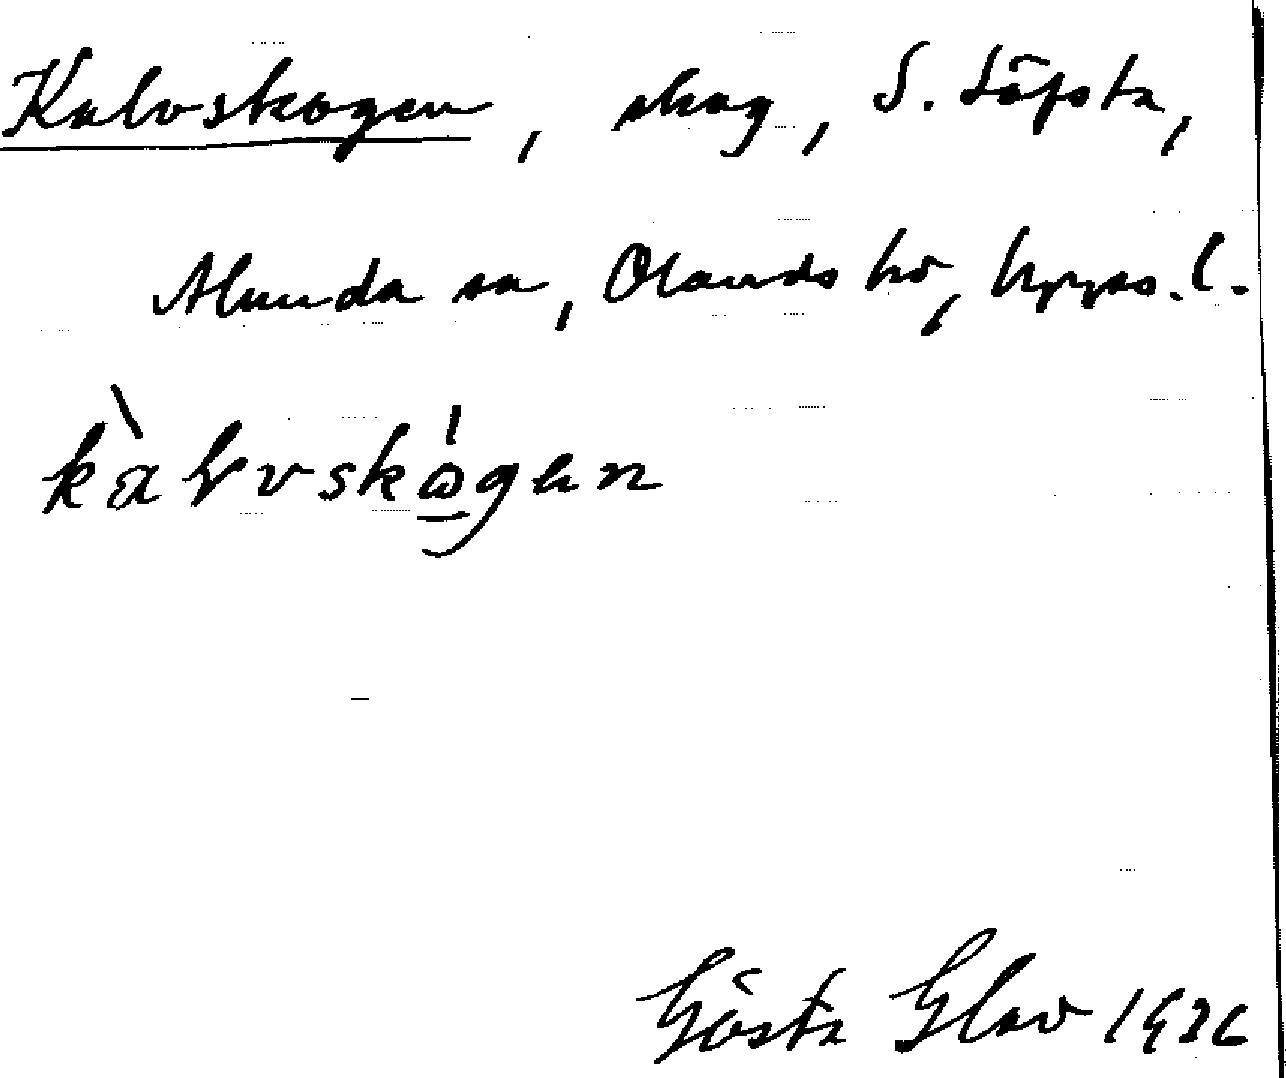 Kalvskogen, skog, S. Löfsta,
Alunda sn, Olands hd, Upps. l.
kàlvskógen
Gösta Glav 1926